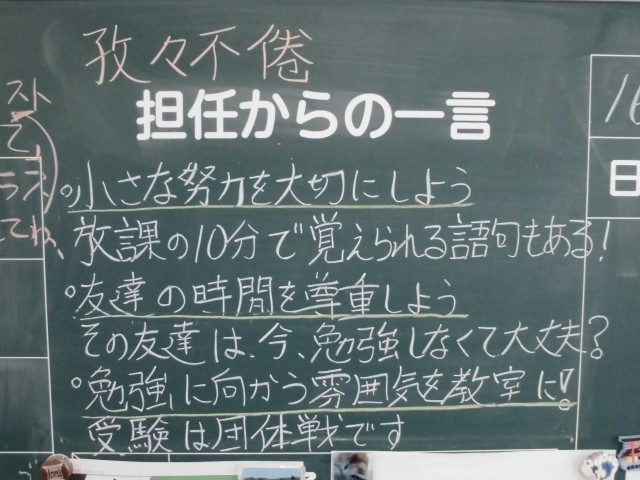 孜々不倦
担任からの一言
○小さな努力を大切にしよう
放課の10分で覚えられる語句もある!
○友達の時間を尊重しよう
その友達は、今、勉強しなくて大丈夫?
○勉強に向かう雰囲気を教室に!
受験は団体戦です
16
日